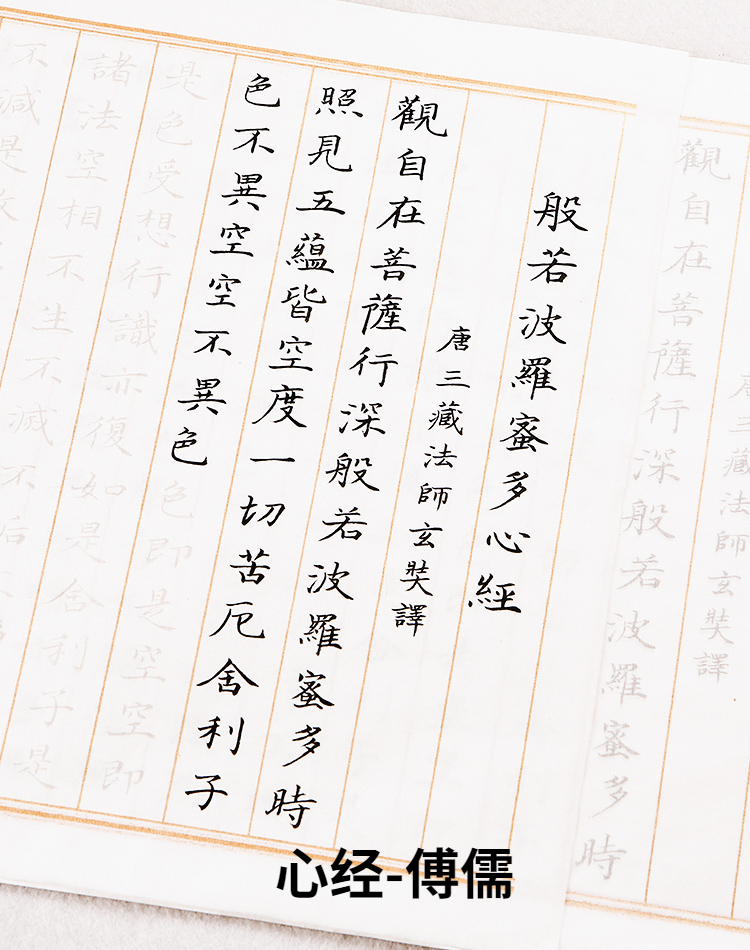 唐三藏法師玄奘譯
觀自在菩薩行深般若波羅蜜多時
般若波羅蜜多心經
唐三藏法師玄奘譯
觀自在菩薩行深般若波羅蜜多時
照見五蘊皆空度一切苦厄舍利子
色不異空空不異色色即是空空即
是色受想行識亦復如是舍利子是
諸法空相不生不滅不垢
不減是故
心经-傅儒